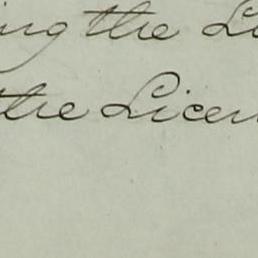 ing the Li
the Licen